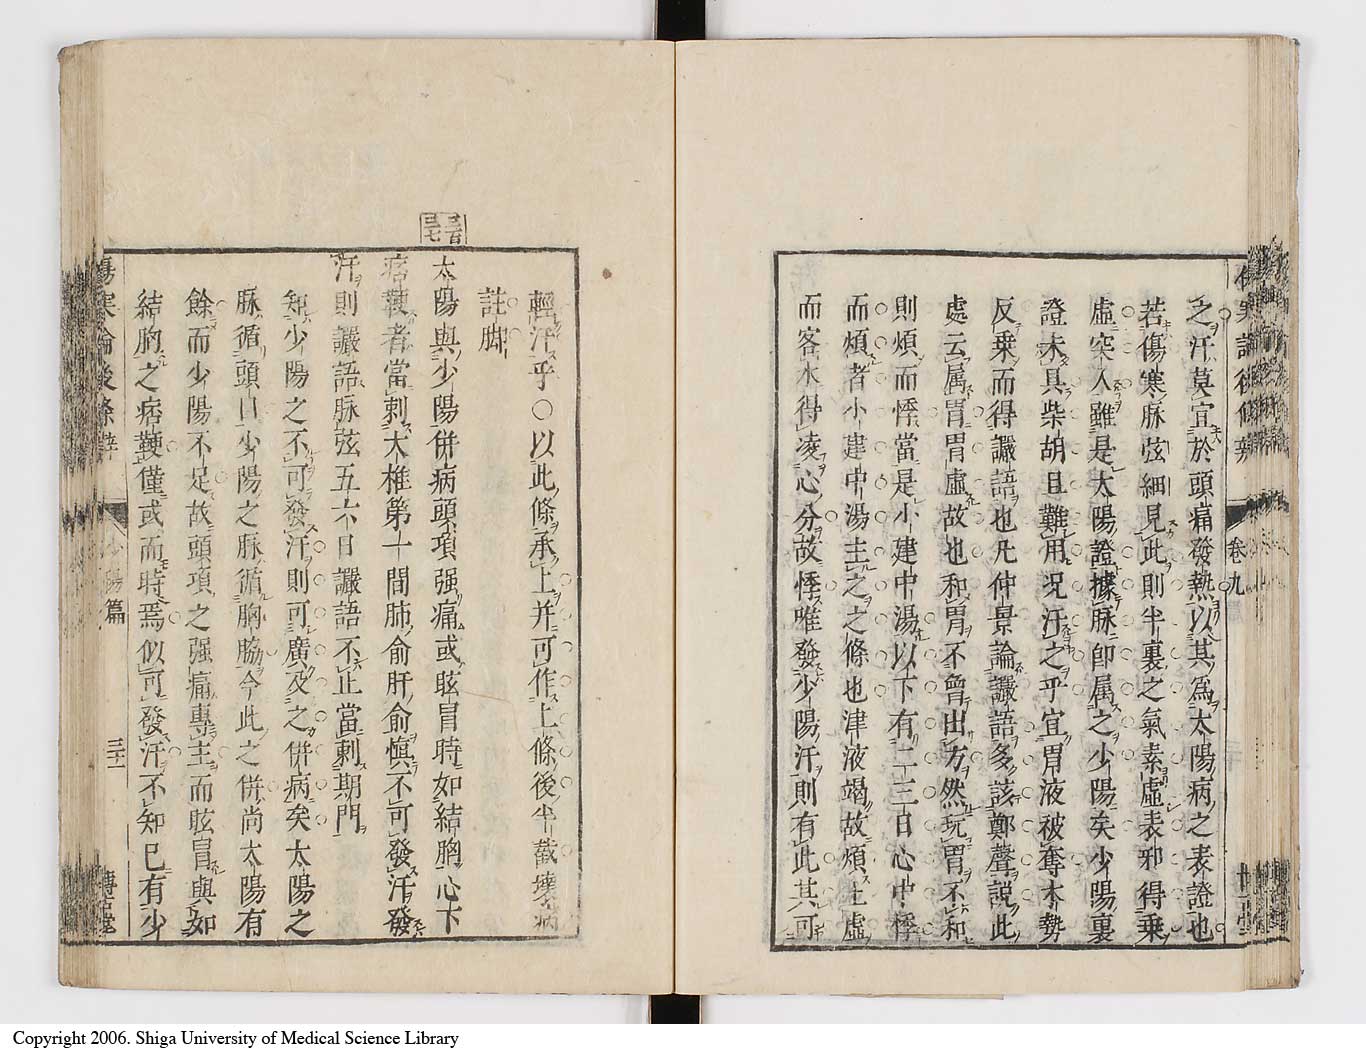 之汗莫宜於頭痛發熱以其爲太陽病之表證也
若傷寒脉弦細見此則半裏之氣素虛表邪得乗
虛突入雖是太陽證據脉卽属之少陽矣少陽裏
證未具柴胡且難用况汗之乎宜胃液被奪木勢
反乗而得讝語也凡仲景論讝語多該鄭聲説此
處云属胃胃虛故也和胃不曾出方然玩胃不和
則煩而悸當是小建中湯以下有二三日心中悸
而煩者小建中湯主之之條也津液竭故煩土虛
而客水得凌心分故悸唯發少陽汗則有此其可
卷九
輕汗乎○以此條承上并可作上條後半截壞病
註脚
三百三七
太陽與少陽併病頭項强痛或眩冒時如結胸心下
痞鞕者當刺大椎第一間肺俞肝俞慎不可發汗發
汗則讝語脉弦五六日讝語不止當刺期門
知少陽之不可發汗則可廣及之併病矣太陽之
脉循頭目少陽之脉循胸脇今此之併尚太陽有
餘而少陽不足故頭項之强痛專主而眩冒與如
結胸之痞鞕僅或而時焉似可發汗不知已有少
傷寒論後條辨
少陽篇
三十一